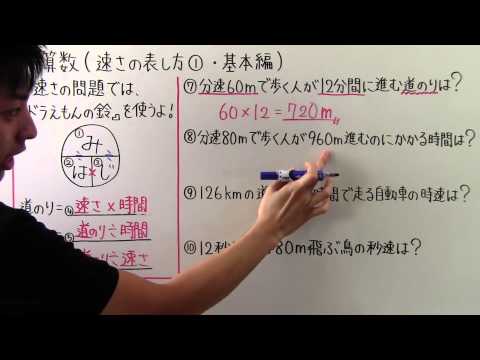 算数(速さの表し方①・基本編)
速さの問題では、
ドラえもんの鈴を使うよ!
①
み
② ③
は×じ
道のり=④速さ×時間
道のり÷時間
道のり÷速さ
⑦分速60mで歩く人が12分間に進む道のりは?
60×12=720m
⑧分速80mで歩く人が960m進むのにかかる時間は?
⑨126kmの道 時間で走る自動車の時速は?
⑩12秒 80m飛ぶ鳥の秒速は?